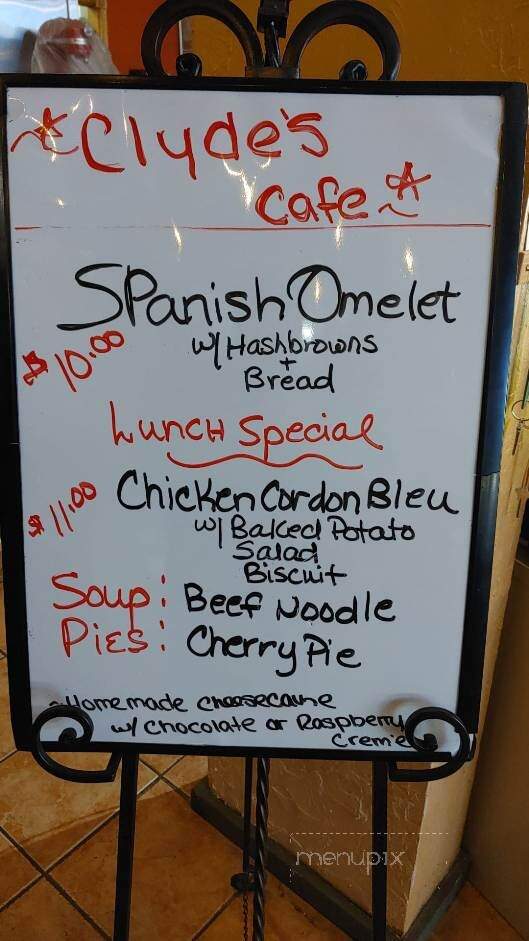 Clyde's
Cafe
Spanish Omelet
$10.00
w/ Hashbrowns
+
Bread
Lunch Special
$11.00
Chicken Cordon Bleu
w/ Baked Potato
Salad
Biscuit
Soup: Beef Noodle
Pies: Cherry Pie
~Homemade cheesecake
w/ Chocolate or Raspberry
Cremie
menupix